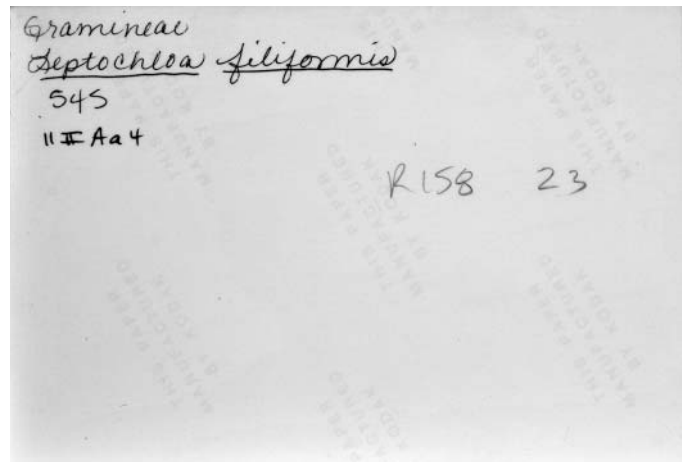 Gramineae
Leptochloa filiformis
545
11 II Aa 4
R158 23
THIS PAPER
MANUFACTURED
BY KODAK